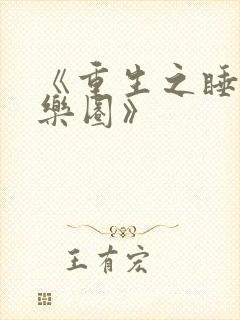 《重生之睡
樂園》
王有宏